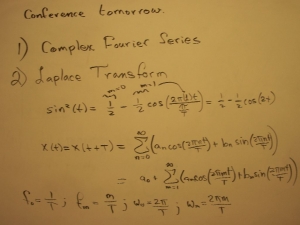 Conference tomorrow.
1) Complex Fourier Series
2) Laplace Transform
m=0 m=1
sin²(t) = 1/2 - 1/2 cos(2π(1)t/π) = 1/2 - 1/2 cos(2t)
x(t) = x(t+T) = ∑_{m=0}^{∞} (a_m cos(2πmt/T) + b_m sin(2πmt/T))
= a₀ + ∑_{m=1}^{∞} (a_m cos(2πmt/T) + b_m sin(2πmt/T))
f₀ = 1/T ; f_m = m/T ; ω₀ = 2π/T ; ω_m = 2πm/T